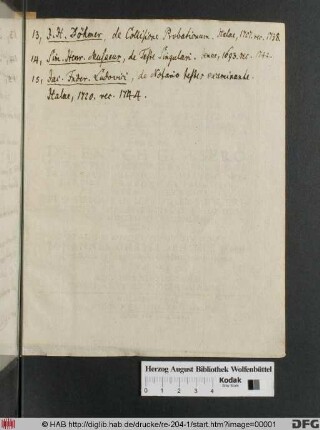 13, J. H. Böhmer, de Collisione Probationum. Halae, 17 rec. 1738.
14, Sim. Henr. Musaeus, de Teste Singulari. 1693. rec. 
15, Jac. Frider. Ludovici, de Notario testes examinante.
Halae, 1720. rec. 1744.
Herzog August Bibliothek Wolfenbüttel
0 1 2 3 4
Kodak
© HAB http://diglib.hab.de/drucke/re-204-1/start.htm?image=00001
DFG